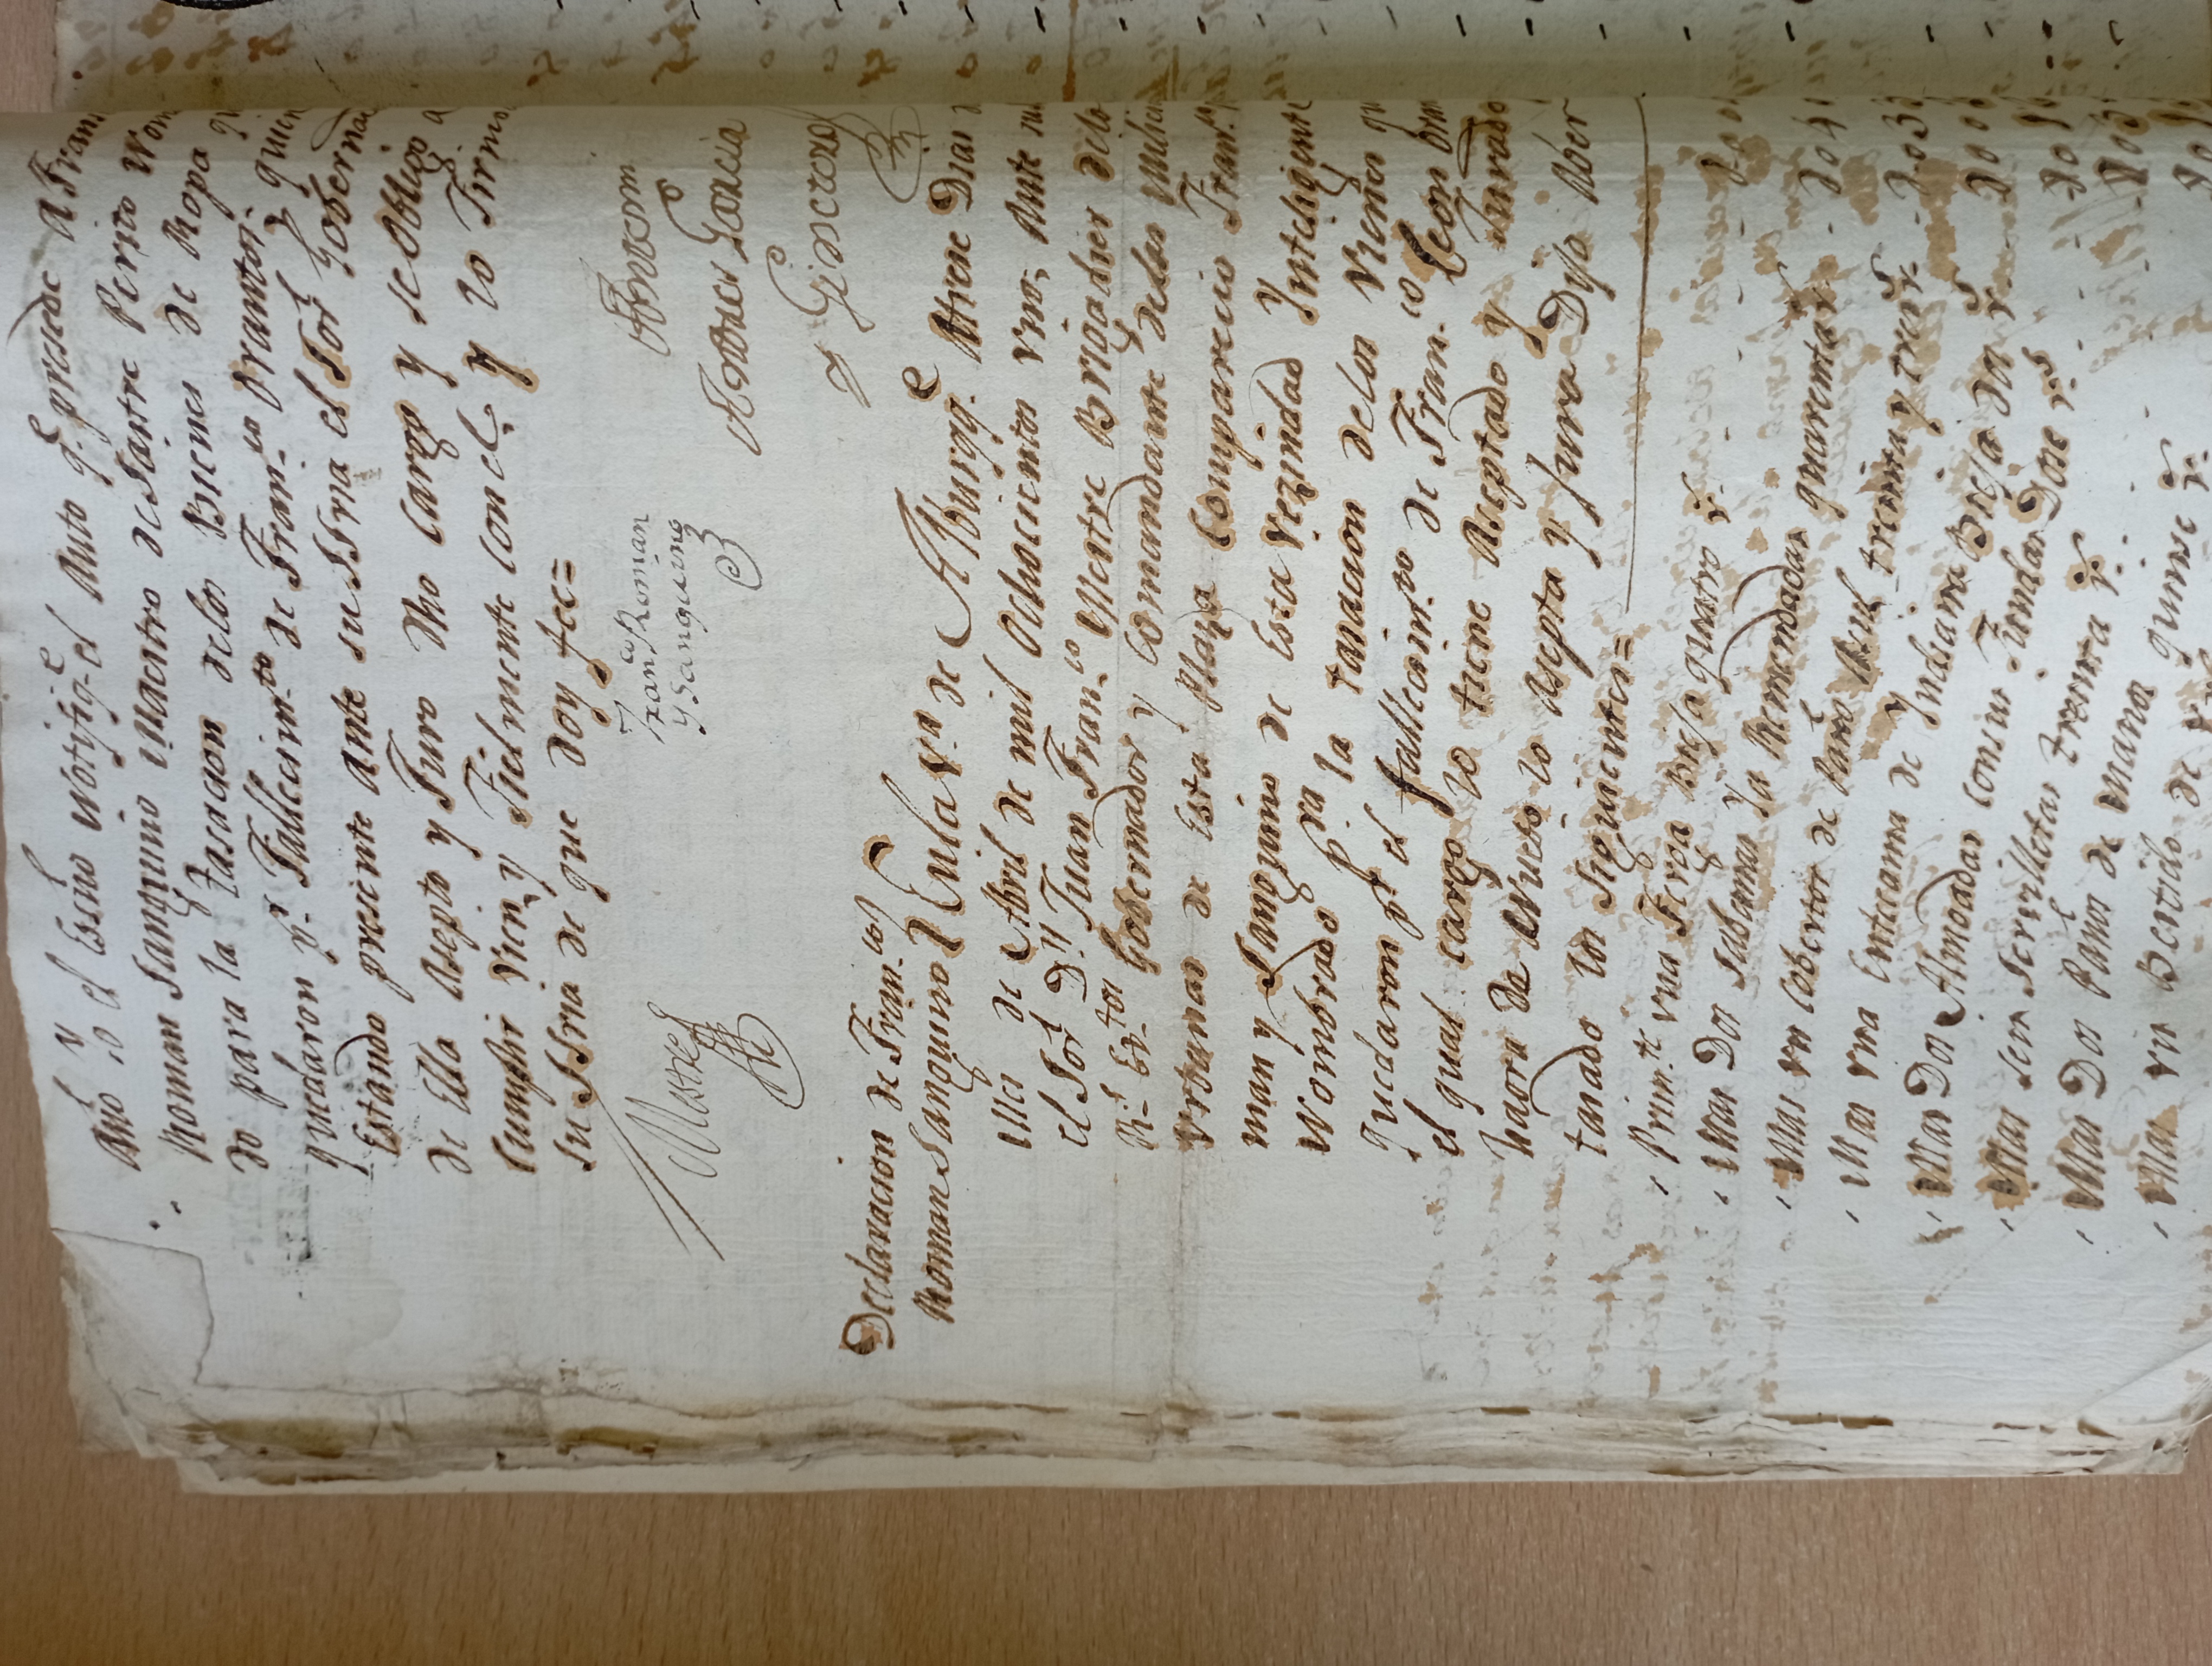 Año yo el Essno Notifiq.e el Auto q.e presede a Fran
Roman Sanguino Maestro de Sastre Perito Nom
do para la tasacion delos Bienes de Ropa q
quedaron p.r Fallecim.to de Fran.co Orantos, quien
Estando presente Ante su SSria el Sor Gobernad
de Ella Asepto y Juro dho Cargo y se obligo a
Cumplir Vien, y Fielmente con el, y lo Firmo
su SSria de que doy fee=
Mestre
Fran.co Roman
y Sanguino
Antemi
Andres Garcia
y Ginerezo
Declaracion de Fran.co
Roman Sanguino
En la V.a de Alburqq.e Atrese Dias
Mes de Abril de mil Ochocientos vno, Ante su
el Sor D.n Juan Fran.co Mestre Brigadier delo
R.s Ex.tos Gobernador y Comandante delas Milici
Vrbanas de Esta Plaza Comparecio Fran.co
man y Sanguino de Esta Vezindad Inteligente
Nombrado p.ra la tasacion delos Vienes qu
quedaron p.r el fallecim.to de Fran.co Leon Oran
el qual cargo lo tiene Aseptado y Jurado
haora de Nuebo lo Asepta y Jura Dijo Aber
tasado los siguientes=
Prim.te vna Jerga Bieja quatro r.s
Mas Dos sabanas Ya Remendadas quarenta r.s 04
Mas vn Cobertor de Paño Asul treinta y tres r.s 033
Mas vna Entecama de Indiana Bieja dos r.s 00
Mas Dos Almoadas consus Fundas Dose r.s 01
Mas seis Servilletas treinta r.s 03
Mas Dos Paños de Manos quinse r.s 01
Mas vn Bestido de